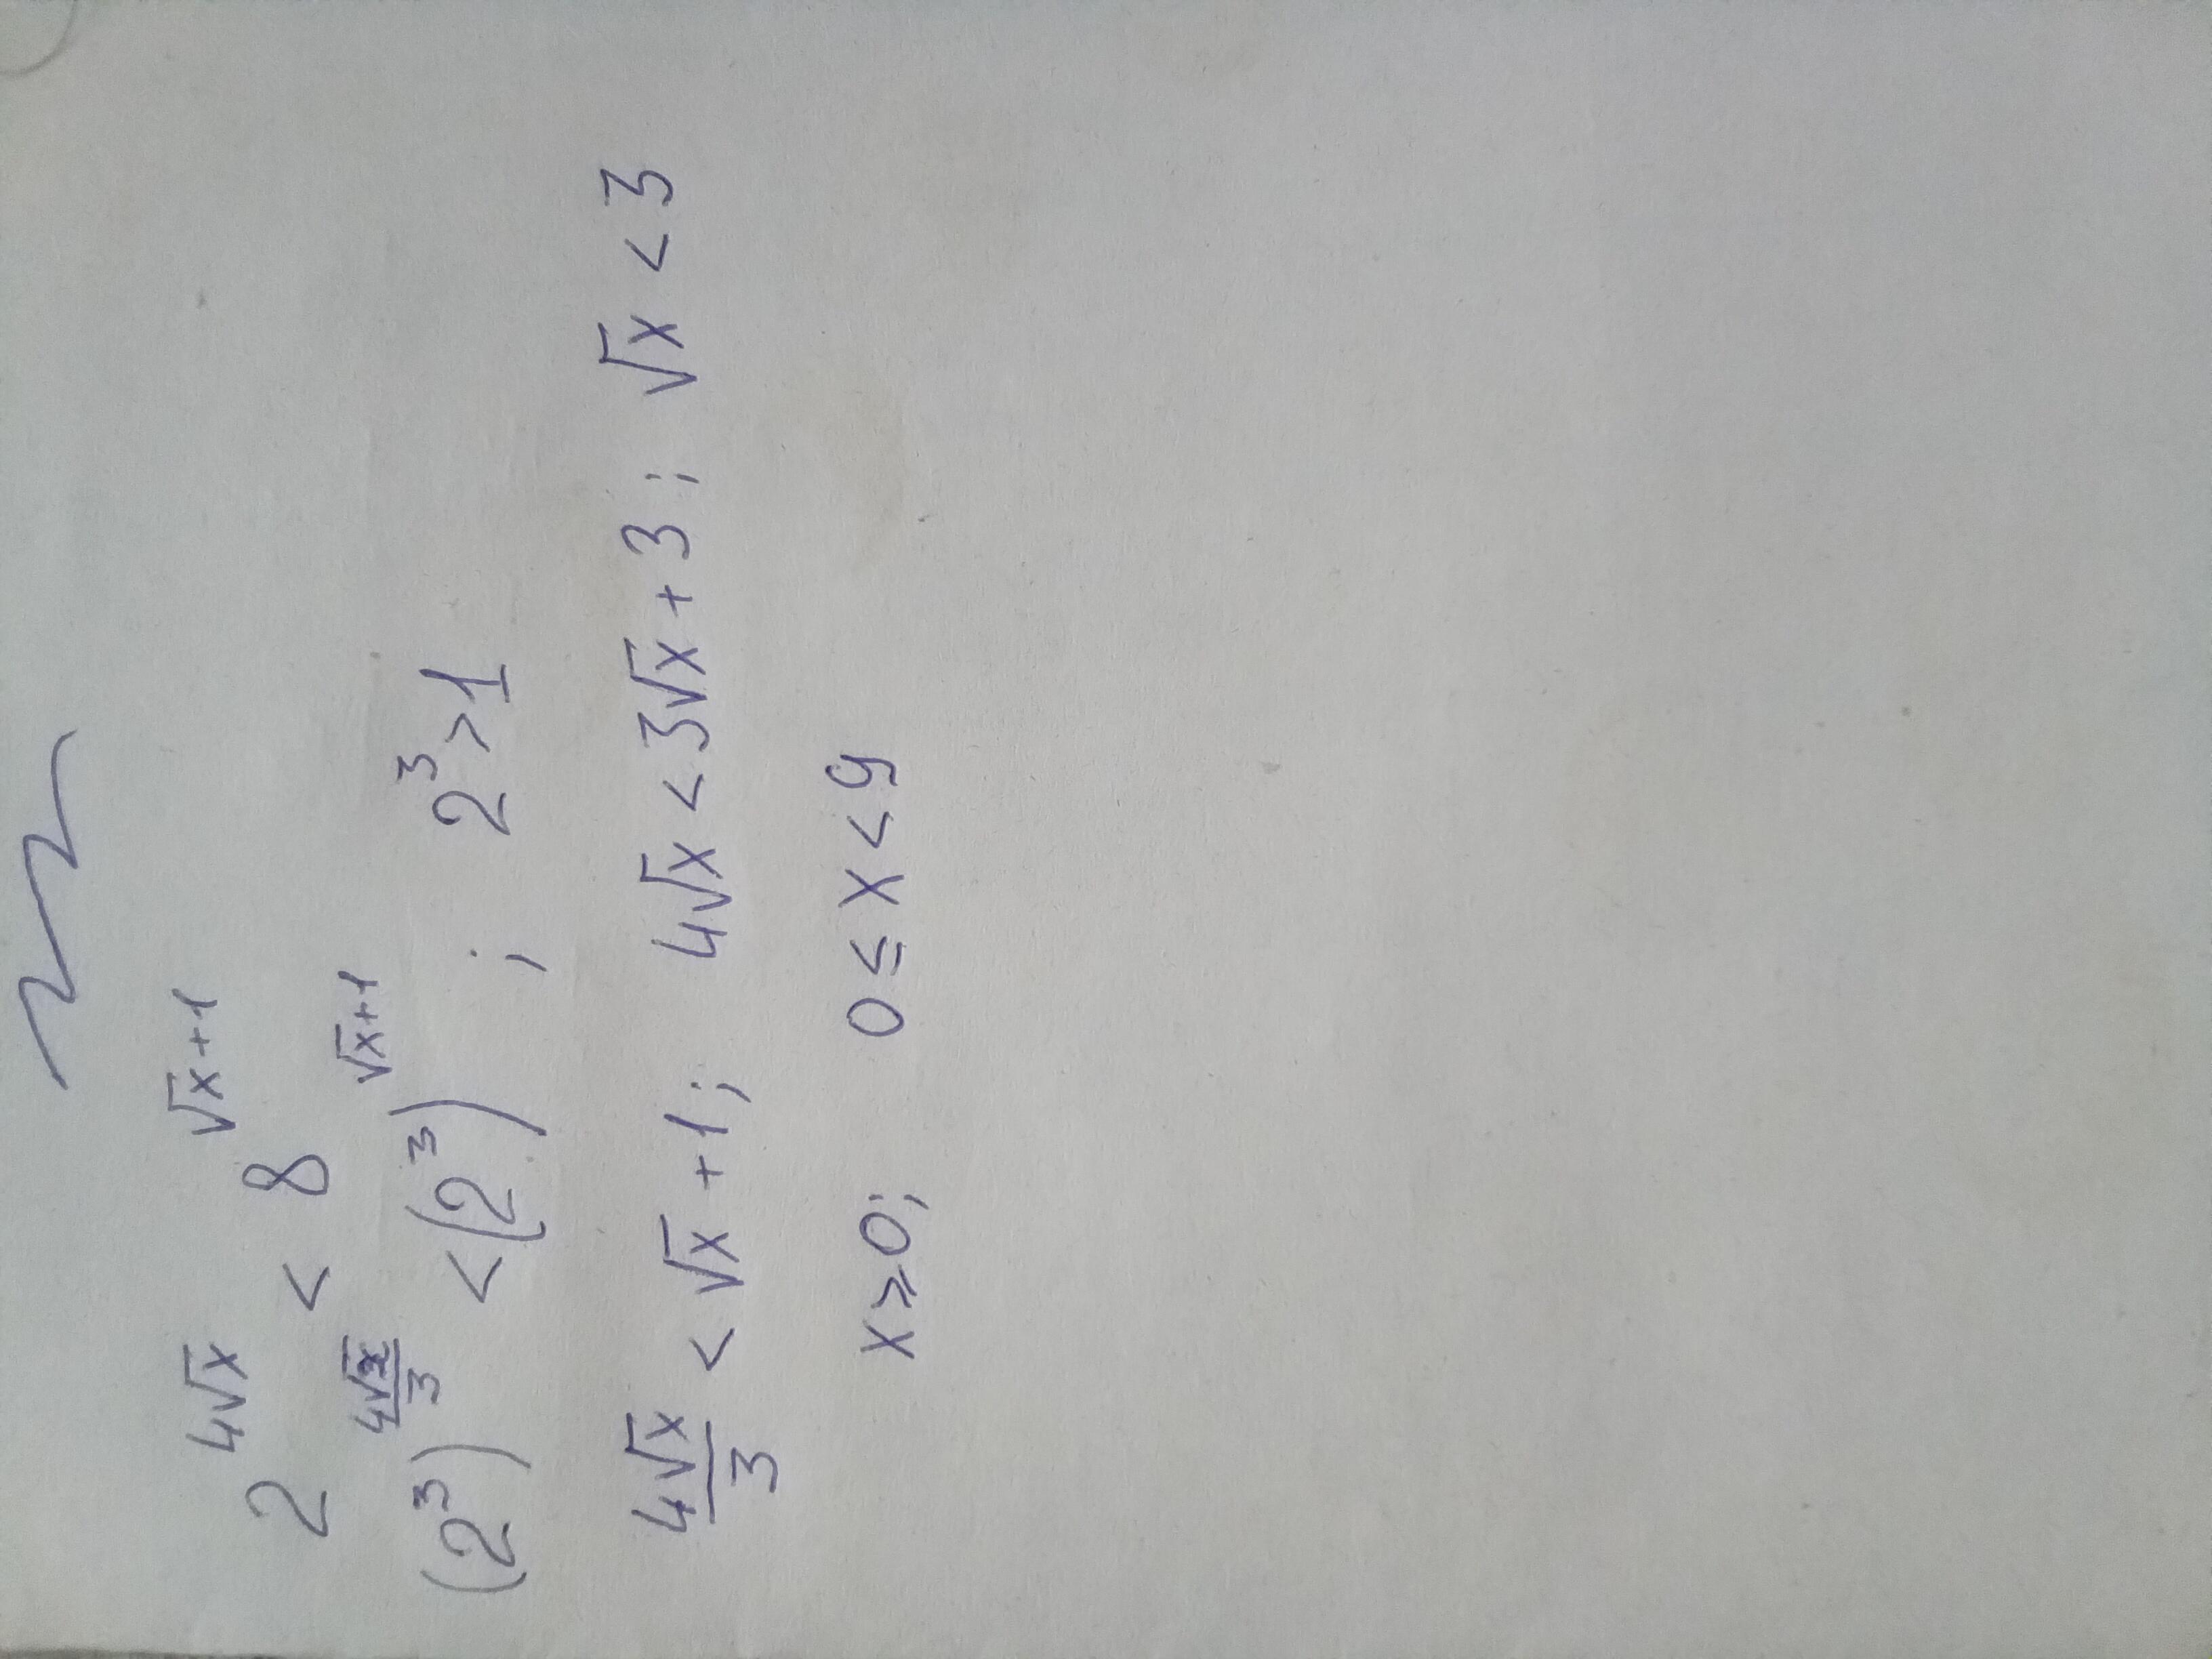 2^{4√x} < 8^{√x+1}
(2^3)^{\frac{4√x}{3}} < (2^3)^{√x+1} ; 2^3 > 1
\frac{4√x}{3} < √x + 1; 4√x < 3√x + 3; √x < 3
x ⩾ 0; 0 ≤ x < 9